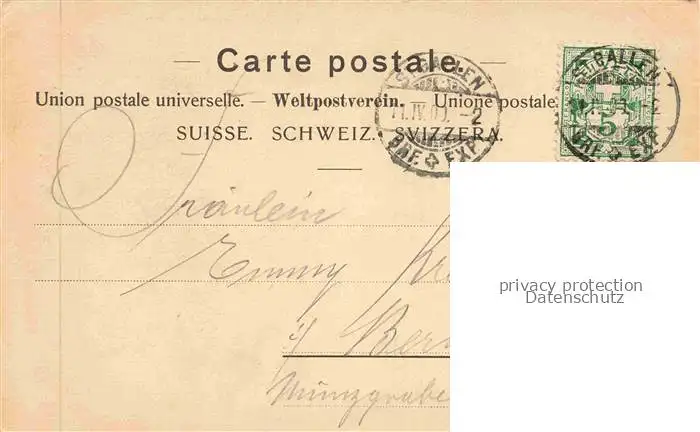 — Carte postale. —
Union postale universelle. — Weltpostverein. — Unione postale
SUISSE. SCHWEIZ. SVIZZERA.
ST. GALLEN
BRF. EXP.
ST. GALLEN
BRF. EXP.
5
Fräulein
Emmy
i/ Bern
Münzgrabe
privacy protection
Datenschutz